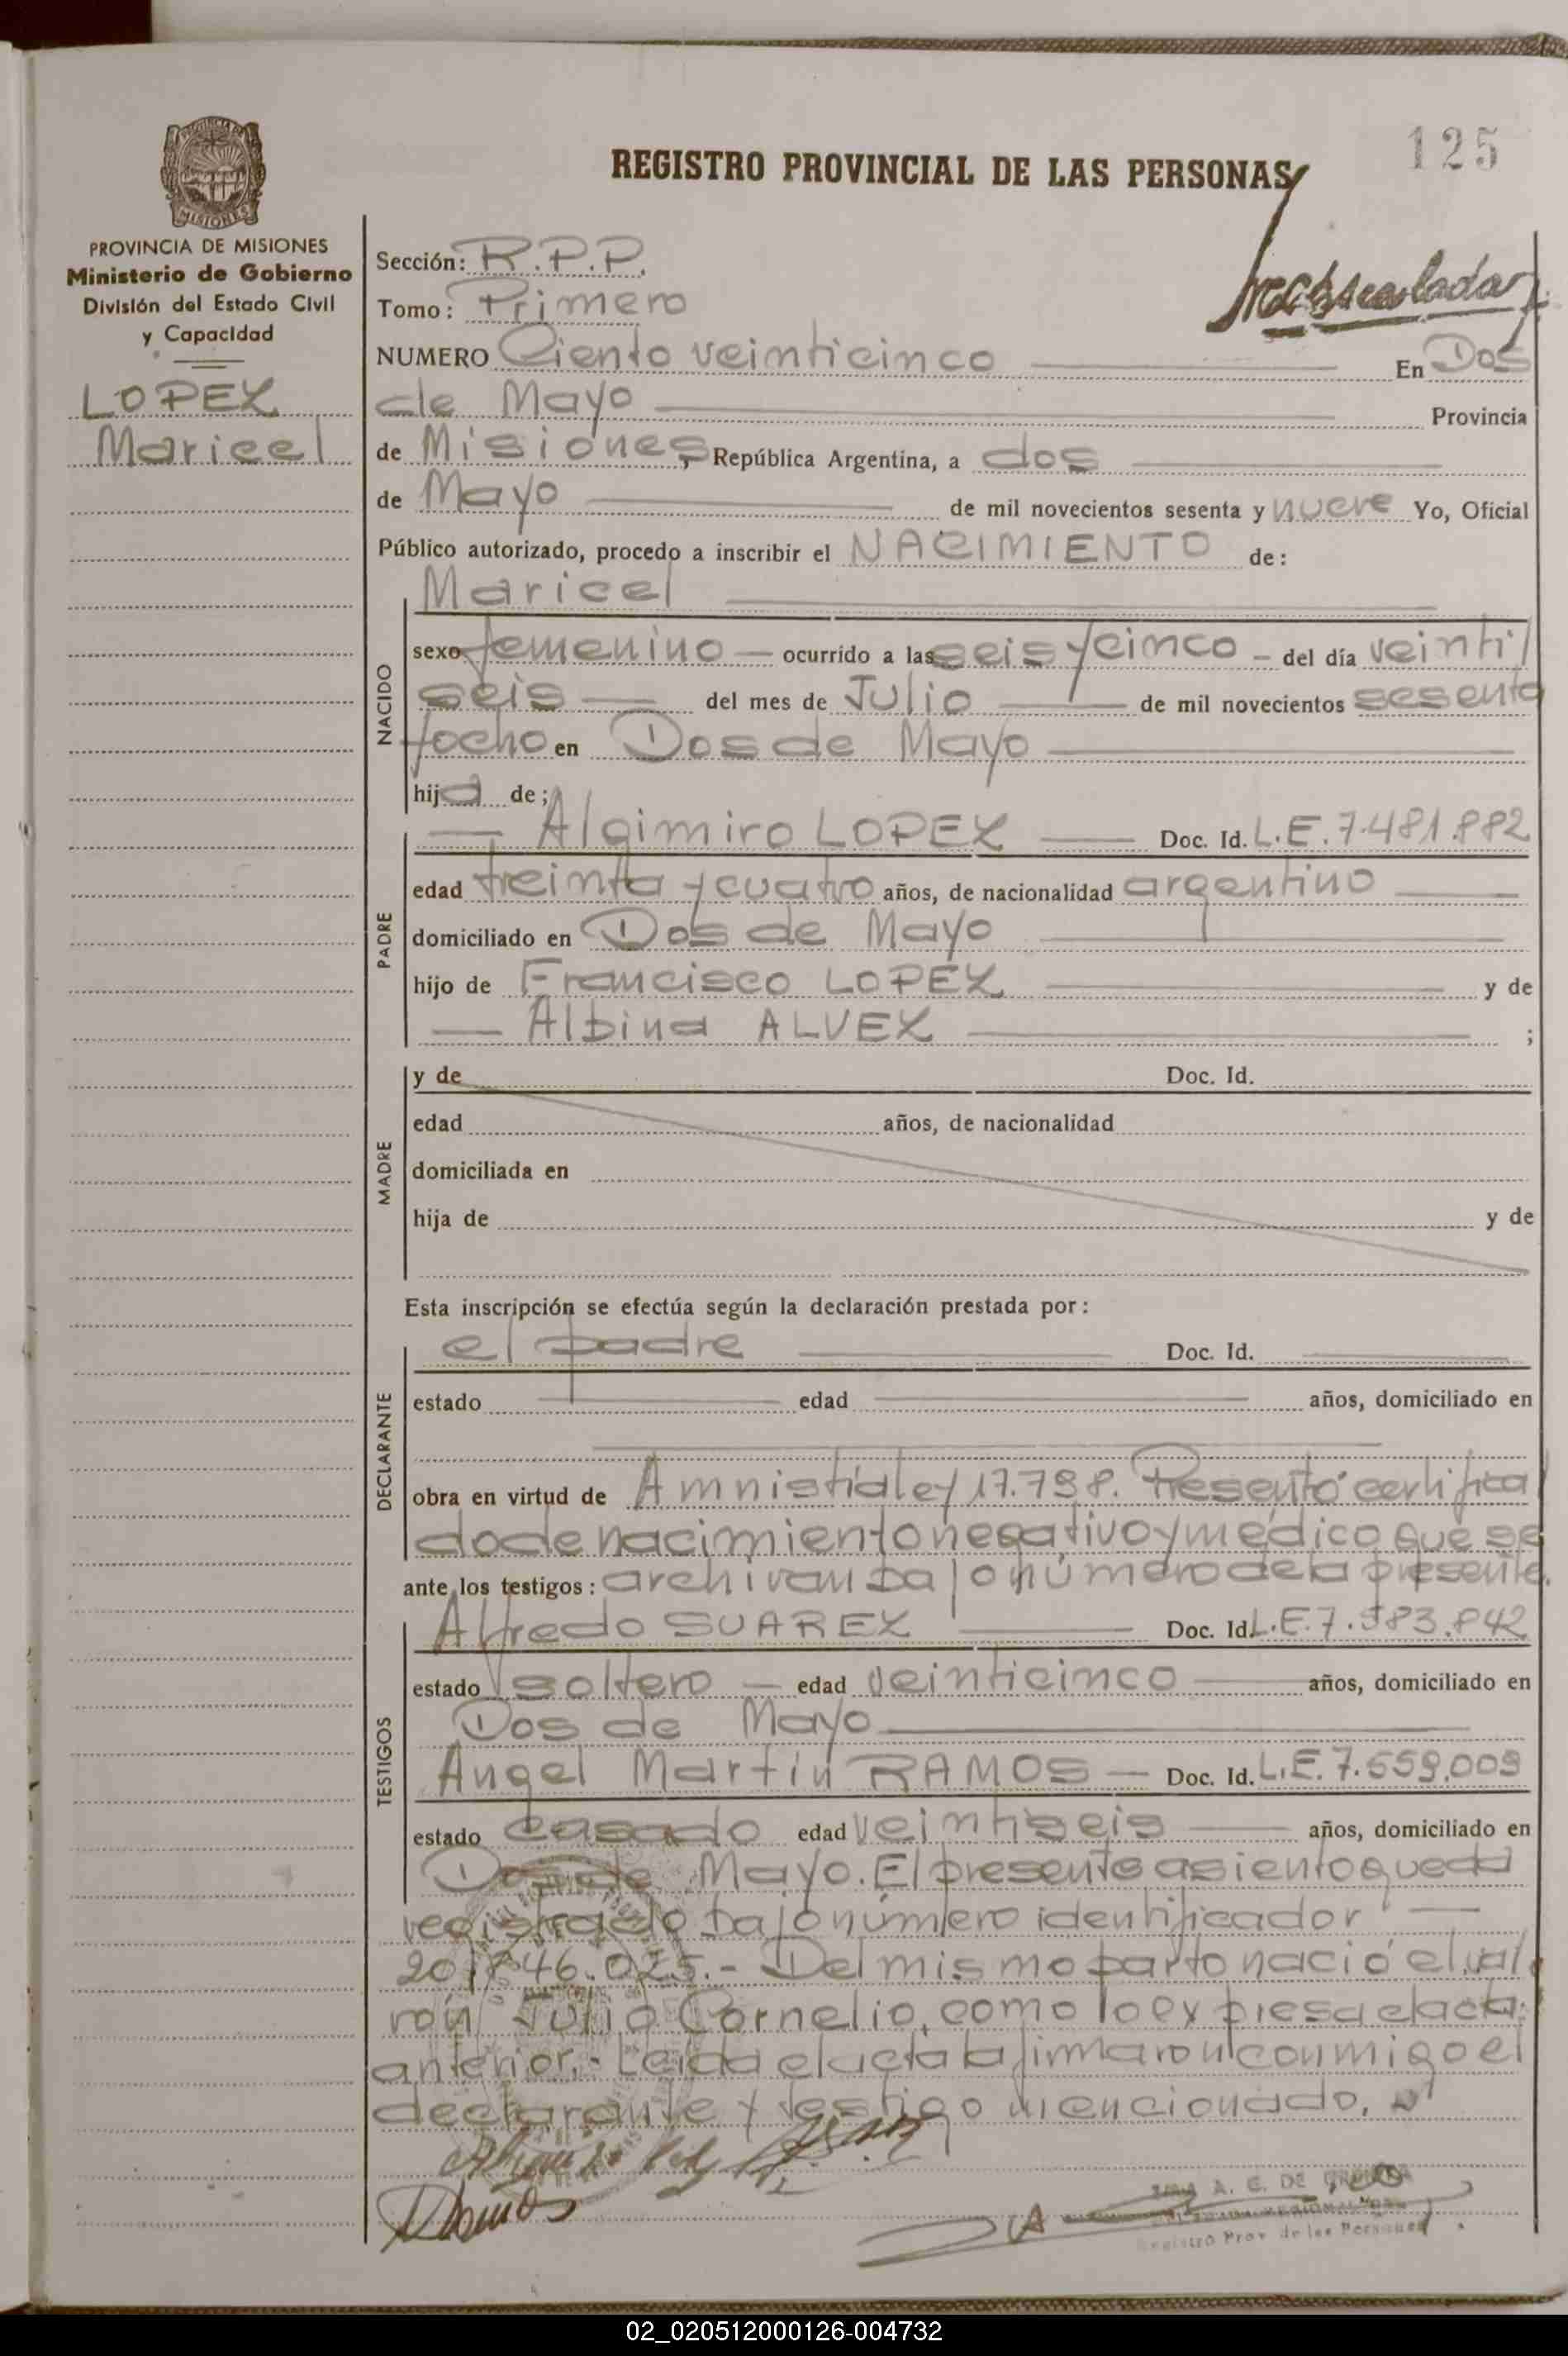 125
REGISTRO PROVINCIAL DE LAS PERSONAS
PROVINCIA DE MISIONES
Ministerio de Gobierno
División del Estado Civil
y Capacidad
LOPEZ
Maricel
Sección: R.P.P.
Tomo: Primero
NUMERO Ciento veinticinco En Dos
de Mayo Provincia
de Misiones, República Argentina, a dos
de Mayo de mil novecientos sesenta y nueve Yo, Oficial
Público autorizado, procedo a inscribir el NACIMIENTO de:
Maricel
NACIDO
sexo femenino — ocurrido a las seis y cinco - del día veinti
seis — del mes de Julio — de mil novecientos sesenta
y ocho en Dos de Mayo
hija de;
PADRE
— Algimiro LOPEZ — Doc. Id. L.E. 7.481.882
edad treinta y cuatro años, de nacionalidad argentino
domiciliado en Dos de Mayo
hijo de Francisco LOPEZ y de
— Albina ALVEZ ;
MADRE
y de Doc. Id.
edad años, de nacionalidad
domiciliada en
hija de y de
Esta inscripción se efectúa según la declaración prestada por:
DECLARANTE
el padre Doc. Id.
estado edad años, domiciliado en
obra en virtud de Amnistia ley 17.798. Presentó certifica
do de nacimiento negativo y médico que se
ante los testigos: archivan bajo número de la presente.
TESTIGOS
Alfredo SUAREZ Doc. Id. L.E. 7.583.842
estado soltero — edad veinticinco años, domiciliado en
Dos de Mayo
Angel Martín RAMOS — Doc. Id. L.E. 7.559.009
estado casado edad veintiseis años, domiciliado en
Dos de Mayo. El presente asiento queda
registrado bajo número identificador —
20.846.025.- Del mismo parto nació el va
rón Julio Cornelio, como lo expresa el acta
anterior.- Leida el acta la firmaron conmigo el
declarante y testigo mencionado.
Ramos
A. C. DE
Registro Prov. de las Personas
02_020512000126-004732